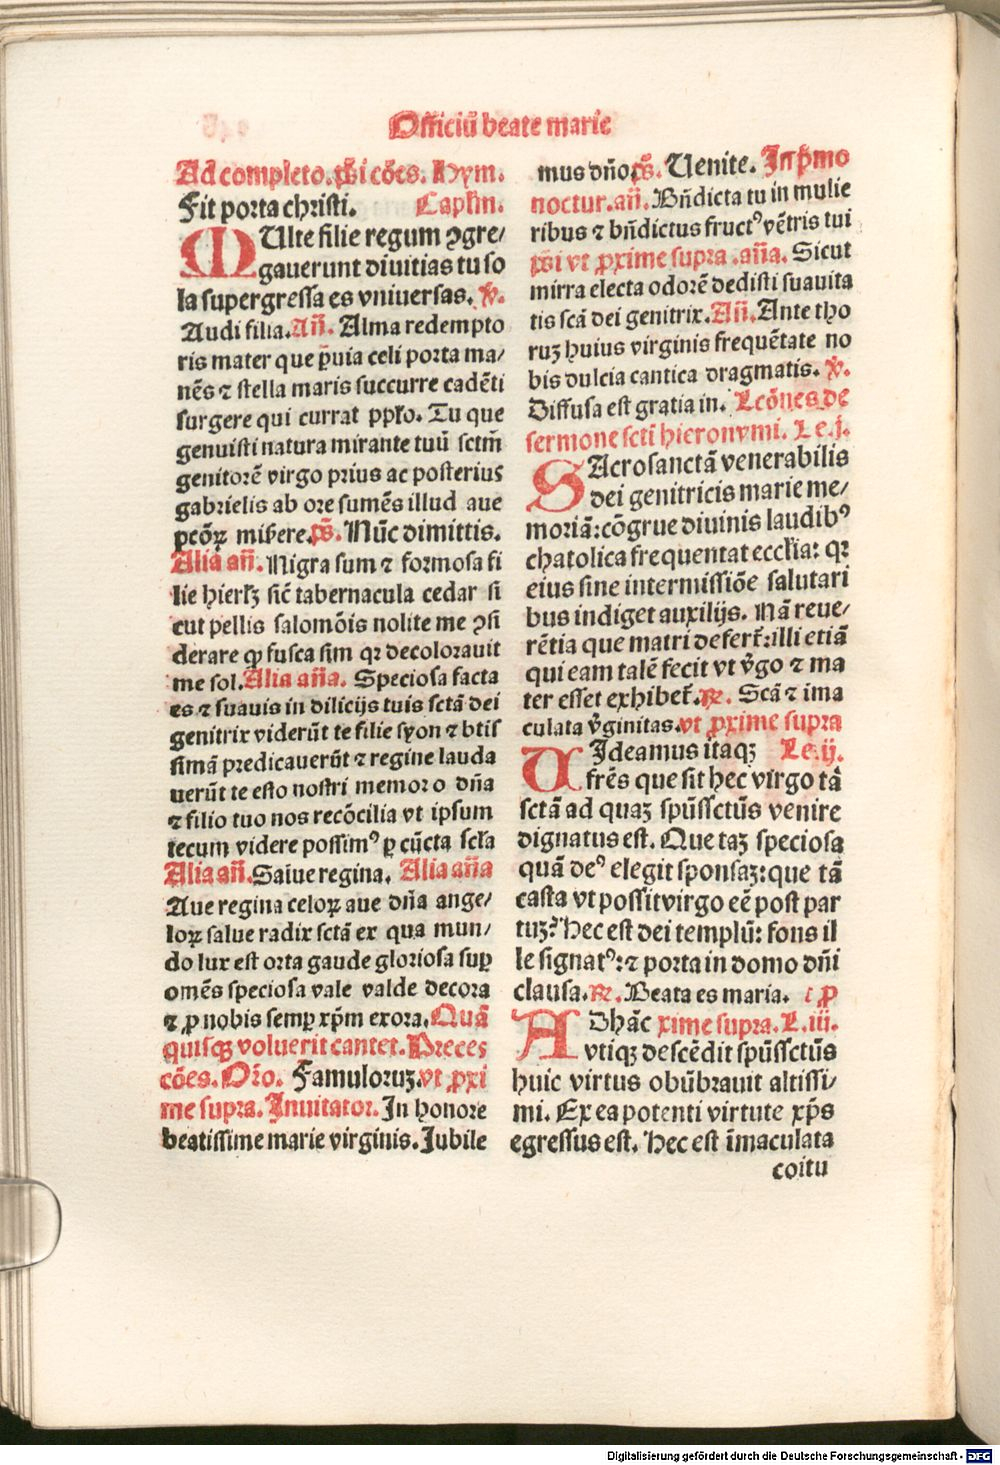 Officiū beate marie
Ad completo. ps̄i cōes. Hym.
Fit porta christi. Capl'm.
MUlte filie regum ꝯgre/
gauerunt diuitias tu so
la supergressa es vniuersas. ℣.
Audi filia. Añ. Alma redempto
ris mater que p̄uia celi porta ma/
nēs ⁊ stella maris succurre cadēti
surgere qui currat pp̄lo. Tu que
genuisti natura mirante tuū sctm̄
genitorē virgo prius ac posterius
gabrielis ab ore sumēs illud aue
pcōꝝ miserere. ps̄. Nūc dimittis.
Alia añ. Nigra sum ⁊ formosa fi
lie hierlꝫ sic̄ tabernacula cedar si
cut pellis salomōis nolite me ꝯsi
derare ꝙ fusca sim qꝛ decolorauit
me sol. Alia aña. Speciosa facta
es ⁊ suauis in dilicijs tuis sctā dei
genitrix viderūt te filie syon ⁊ btīs
simā predicauerūt ⁊ regine lauda
uerūt te esto nostri memor o dña
⁊ filio tuo nos recōcilia vt ipsum
tecum videre possimꝰ ꝑ cūcta scl̄a
Alia añ. Salue regina. Alia aña
Aue regina celoꝝ aue dña ange/
loꝝ salue radix sctā ex qua mun/
do lux est orta gaude gloriosa suꝑ
omēs speciosa vale valde decora
⁊ ꝓ nobis semꝑ xp̄m exora. Quā
quisqꝫ voluerit cantet. Preces
cōes. Oŕo. Famuloruꝫ. vt ꝓxi
me supra. Inuitator. In honore
beatissime marie virginis. Jubile
mus dño. ps̄. Uenite. In p̄mo
noctur. añ. Bñdicta tu in mulie
ribus ⁊ bñdictus fructꝰ vētris tui
ps̄i vt ꝓxime supra. aña. Sicut
mirra electa odorē dedisti suauita
tis scā dei genitrix. Añ. Ante tho
ruꝫ huius virginis frequētate no
bis dulcia cantica dragmatis. ℣.
Diffusa est gratia in. Lcōnes de
sermone scti hieronymi. Le. j.
SAcrosanctā venerabilis
dei genitricis marie me/
moriā: cōgrue diuinis laudibꝰ
chatolica frequentat eccl'ia: qꝛ
eius sine intermissiōe salutari
bus indiget auxilijs. Nā reue/
rētia que matri defert̄: illi etiā
qui eam talē fecit vt v̄go ⁊ ma
ter esset exhibet̄. ℟. Scā ⁊ ima
culata v̄ginitas. vt ꝓxime supra
UIdeamus itaqꝫ Le. ij.
frēs que sit hec virgo tā
sctā ad quaꝫ spūssctūs venire
dignatus est. Que taꝫ speciosa
quā deꝰ elegit sponsaꝫ: que tā
casta vt possit virgo eē post par
tuꝫ? Hec est dei templū: fons il
le signatꝰ: ⁊ porta in domo dñi
clausa. ℟. Beata es maria. i ꝓ
ADhāc xime supra. L. iii.
vtiqꝫ descēdit spūssctūs
huic virtus obūbrauit altissi/
mi. Ex ea potenti virtute xp̄s
egressus est. Hec est īmaculata
coitu
Digitalisierung gefördert durch die Deutsche Forschungsgemeinschaft - DFG